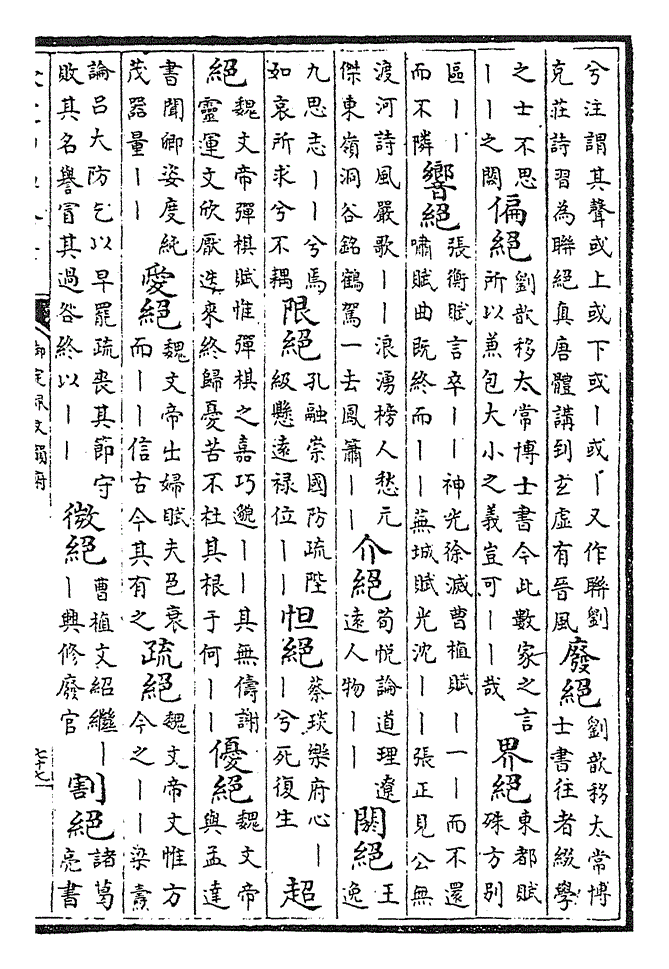 兮注謂其聲或上或下或丨或丨又作聯劉
克莊詩習為聯絕真唐體講到玄虛有晉風
廢絕
劉歆移太常博
士書往者綴學
之士不思
丨丨之闕
偏絕
劉歆移太常博士書今此數家之言
所以兼包大小之義豈可丨丨哉
界絕
東都賦
殊方別
區丨丨
而不隣
響絕
張衡賦言卒丨丨神光徐滅曹植賦丨一丨而不還
嘯賦曲既終而丨丨蕪城賦光沈丨丨張正見公無
渡河詩風嚴歌丨丨浪湧榜人愁元
傑東嶺洞谷銘鶴駕一去鳳簫丨丨
介絕
荀悅論道理遼
遠人物丨丨
閼絕
王
逸
九思志丨丨兮焉
如哀所求兮不耦
限絕
孔融崇國防疏陛
級懸遠祿位丨丨
怛絕
蔡琰樂府心丨
丨兮死復生
超
絕
魏文帝彈棋賦惟彈棋之嘉巧邈丨丨其無儔謝
靈運文欣厭迭來終歸憂苦不杜其根于何丨丨
優絕
魏文帝
與孟達
書聞卿姿度純
茂器量丨丨
愛絕
魏文帝出婦賦夫色衰
而丨丨信古今其有之
疏絕
魏文帝文惟方
今之丨丨梁燾
論呂大防乞以早罷疏喪其節守
敗其名譽冒其過咎終以丨丨
微絕
曹植文紹繼丨
丨興修廢官
割絕
諸葛
亮書